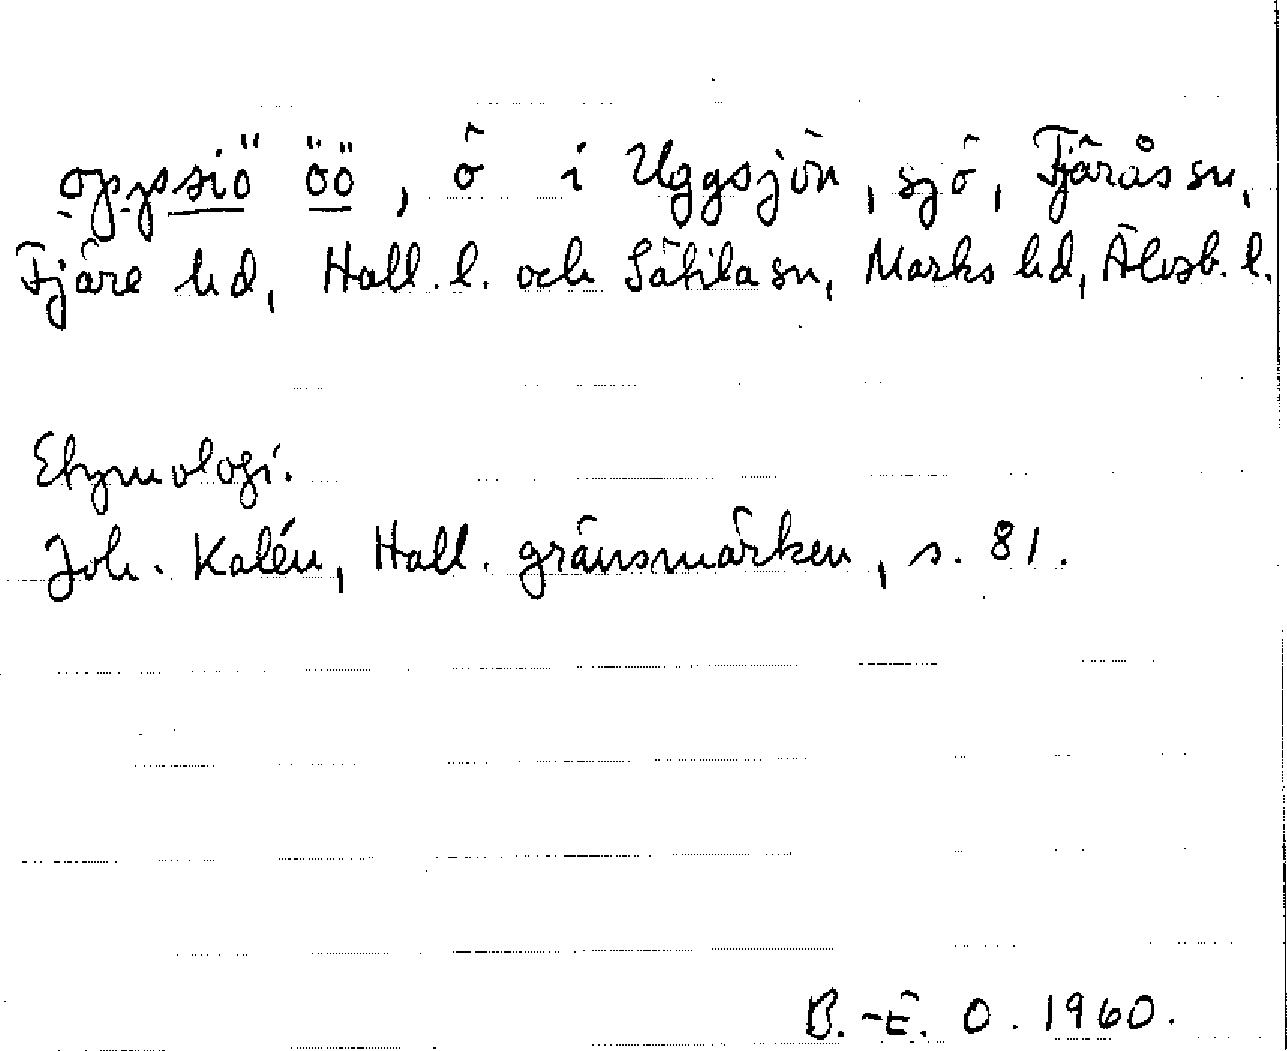 opzssiö öö, ö i Uggsjön, sjö, Fjärås sn,
Fjäre hd, Hall. l. och Sätila sn, Marks hd, Älvsb. l.
Etymologi.
Joh. Kalén, Hall. gränsmärken, s. 81.
B.-E. O. 1960.